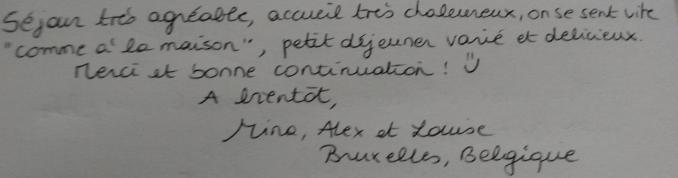 Séjour très agréable, accueil très chaleureux, on se sent vite
"comme à la maison", petit déjeuner varié et délicieux.
Merci et bonne continuation ! ☺
A bientôt,
Nina, Alex et Louise
Bruxelles, Belgique